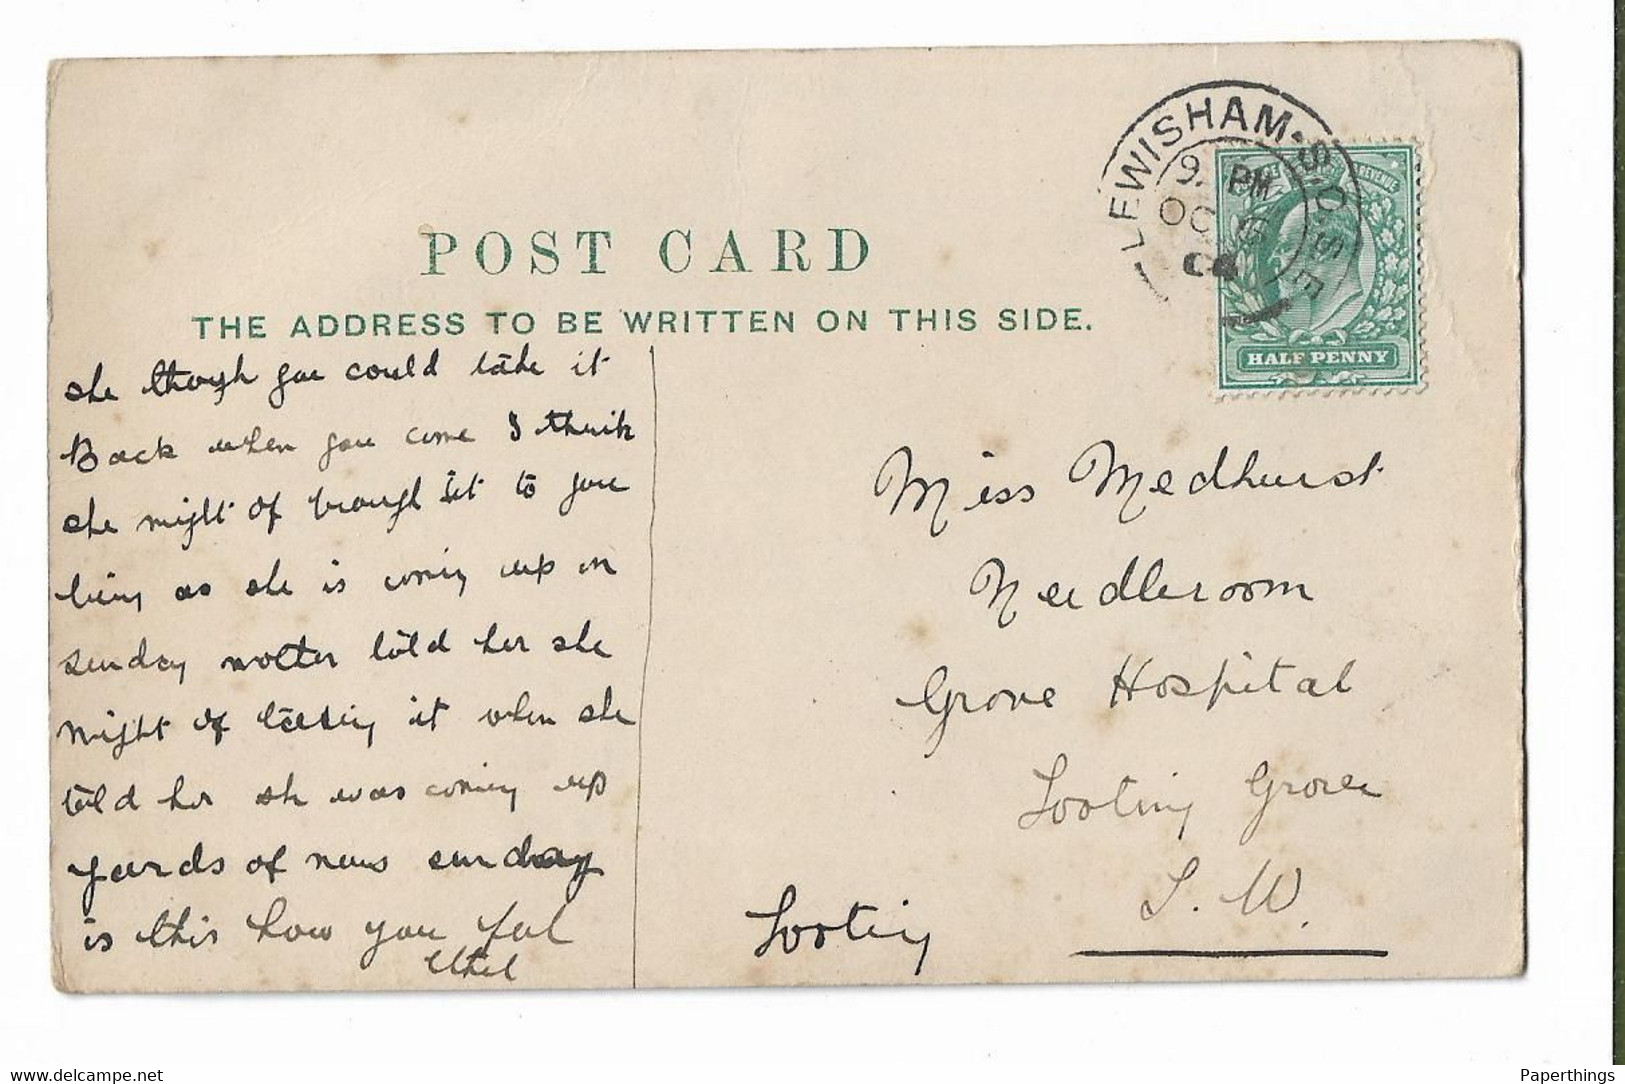 POST CARD
THE ADDRESS TO BE WRITTEN ON THIS SIDE.
LEWISHAM·S.O. S.E
9. PM
OC
REVENUE
HALF PENNY
she though you could take it
Back when you come I think
she might of brough it to you
being as she is coming up on
sunday mother told her she
might of it when she
told her she was coming up
yards of news sunday
is this how you feel
Ethel
Miss Medhurst
Needleroom
Grove Hospital
Tooting Grove
S. W.
Tooting
www.delcampe.net
Paperthings